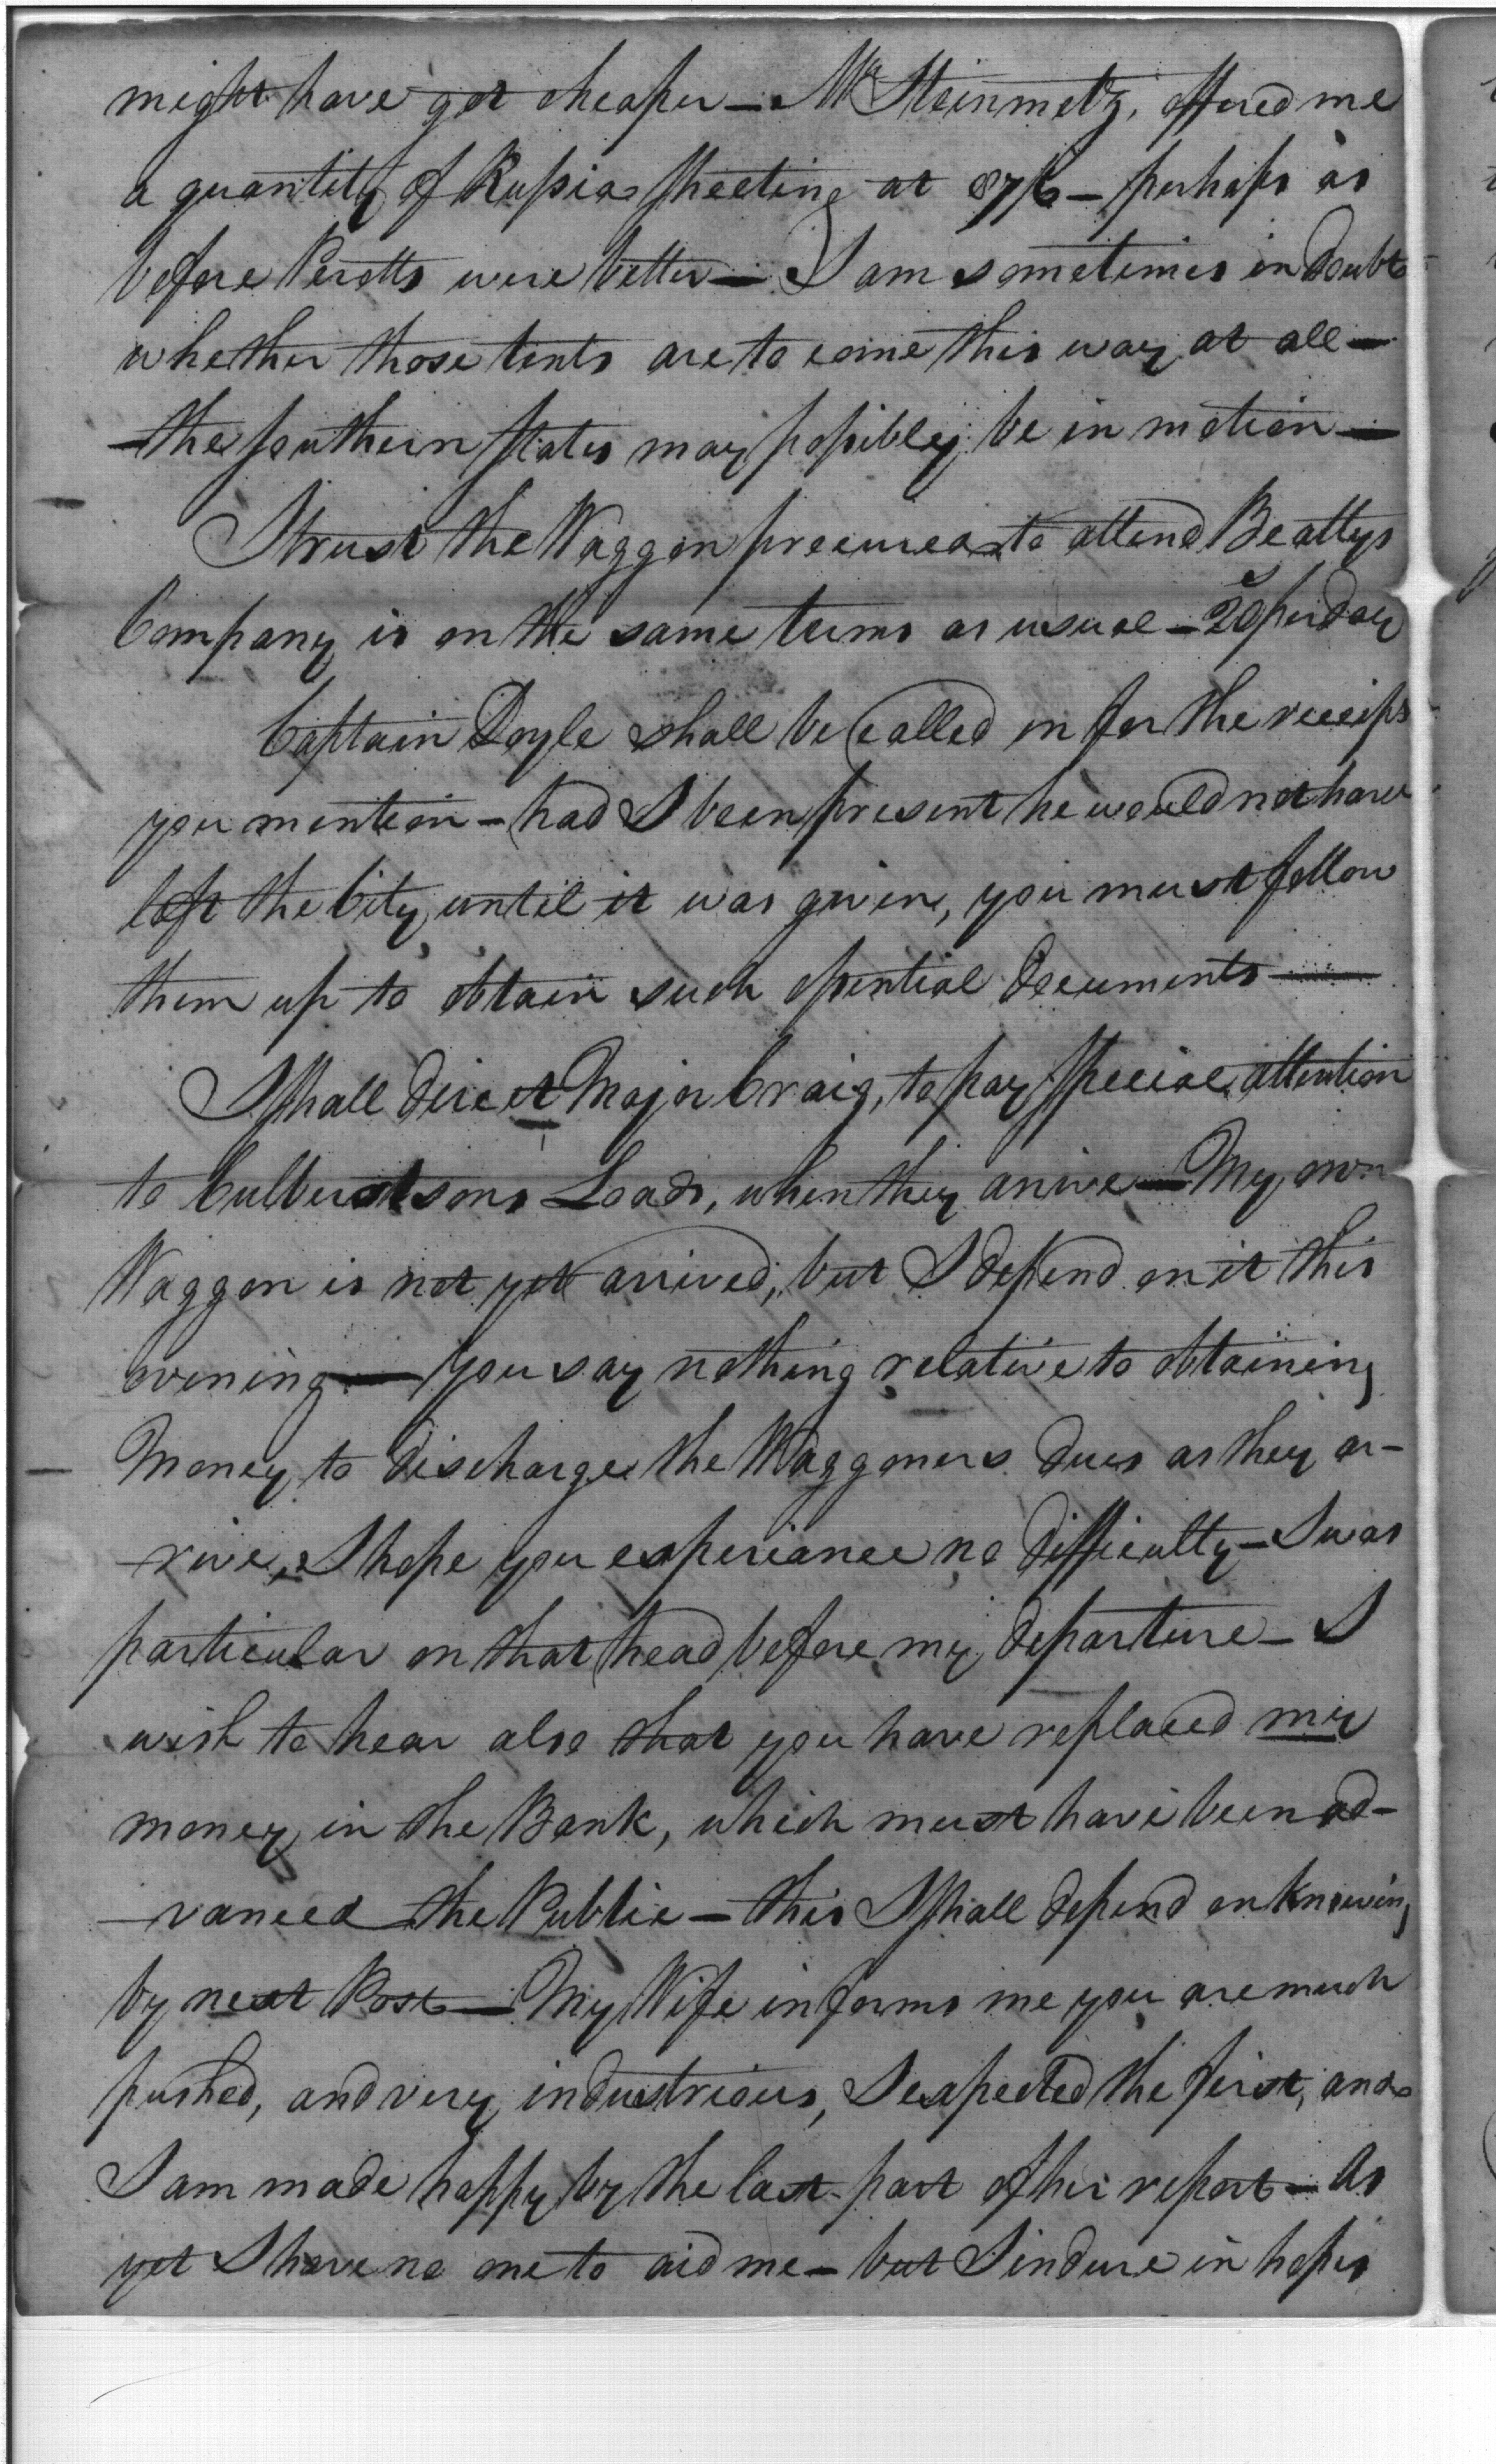 might have got cheaper — Mr Steinmetz, offered me
a quantity of Russia Sheeting at 87/6 — perhaps as
before Perotts were better — I am sometimes in doubt
whether those tents are to come this way at all —
— the southern states may possibly be in motion —
I trust the Waggon procured to attend Beattys
Company is on the same terms as usual — 20s per day
Captain Doyle shall be called on for the receips
you mention — had I been present he would not have
left the City until it was given, you must follow
them up to obtain such essential documents —
I shall direct Major Craig, to pay special attention
to Culbertsons Loads, when they arrive — My own
Waggon is not yet arrived, but I depend on it this
evening — You say nothing relative to obtaining
Money to discharge the Waggoners dues as they ar-
-rive, I hope you experiance no difficulty — I was
particular on that head before my departure — I
wish to hear also that you have replaced my
money in the Bank, which must have been ad-
-vanced the Public — this I shall depend on knowing
by next Post — My Wife informs me you are much
pushed, and very industrious, I expected the first, and
I am made happy by the last part of her report — As
yet I have no one to aid me — but I indure in hopes